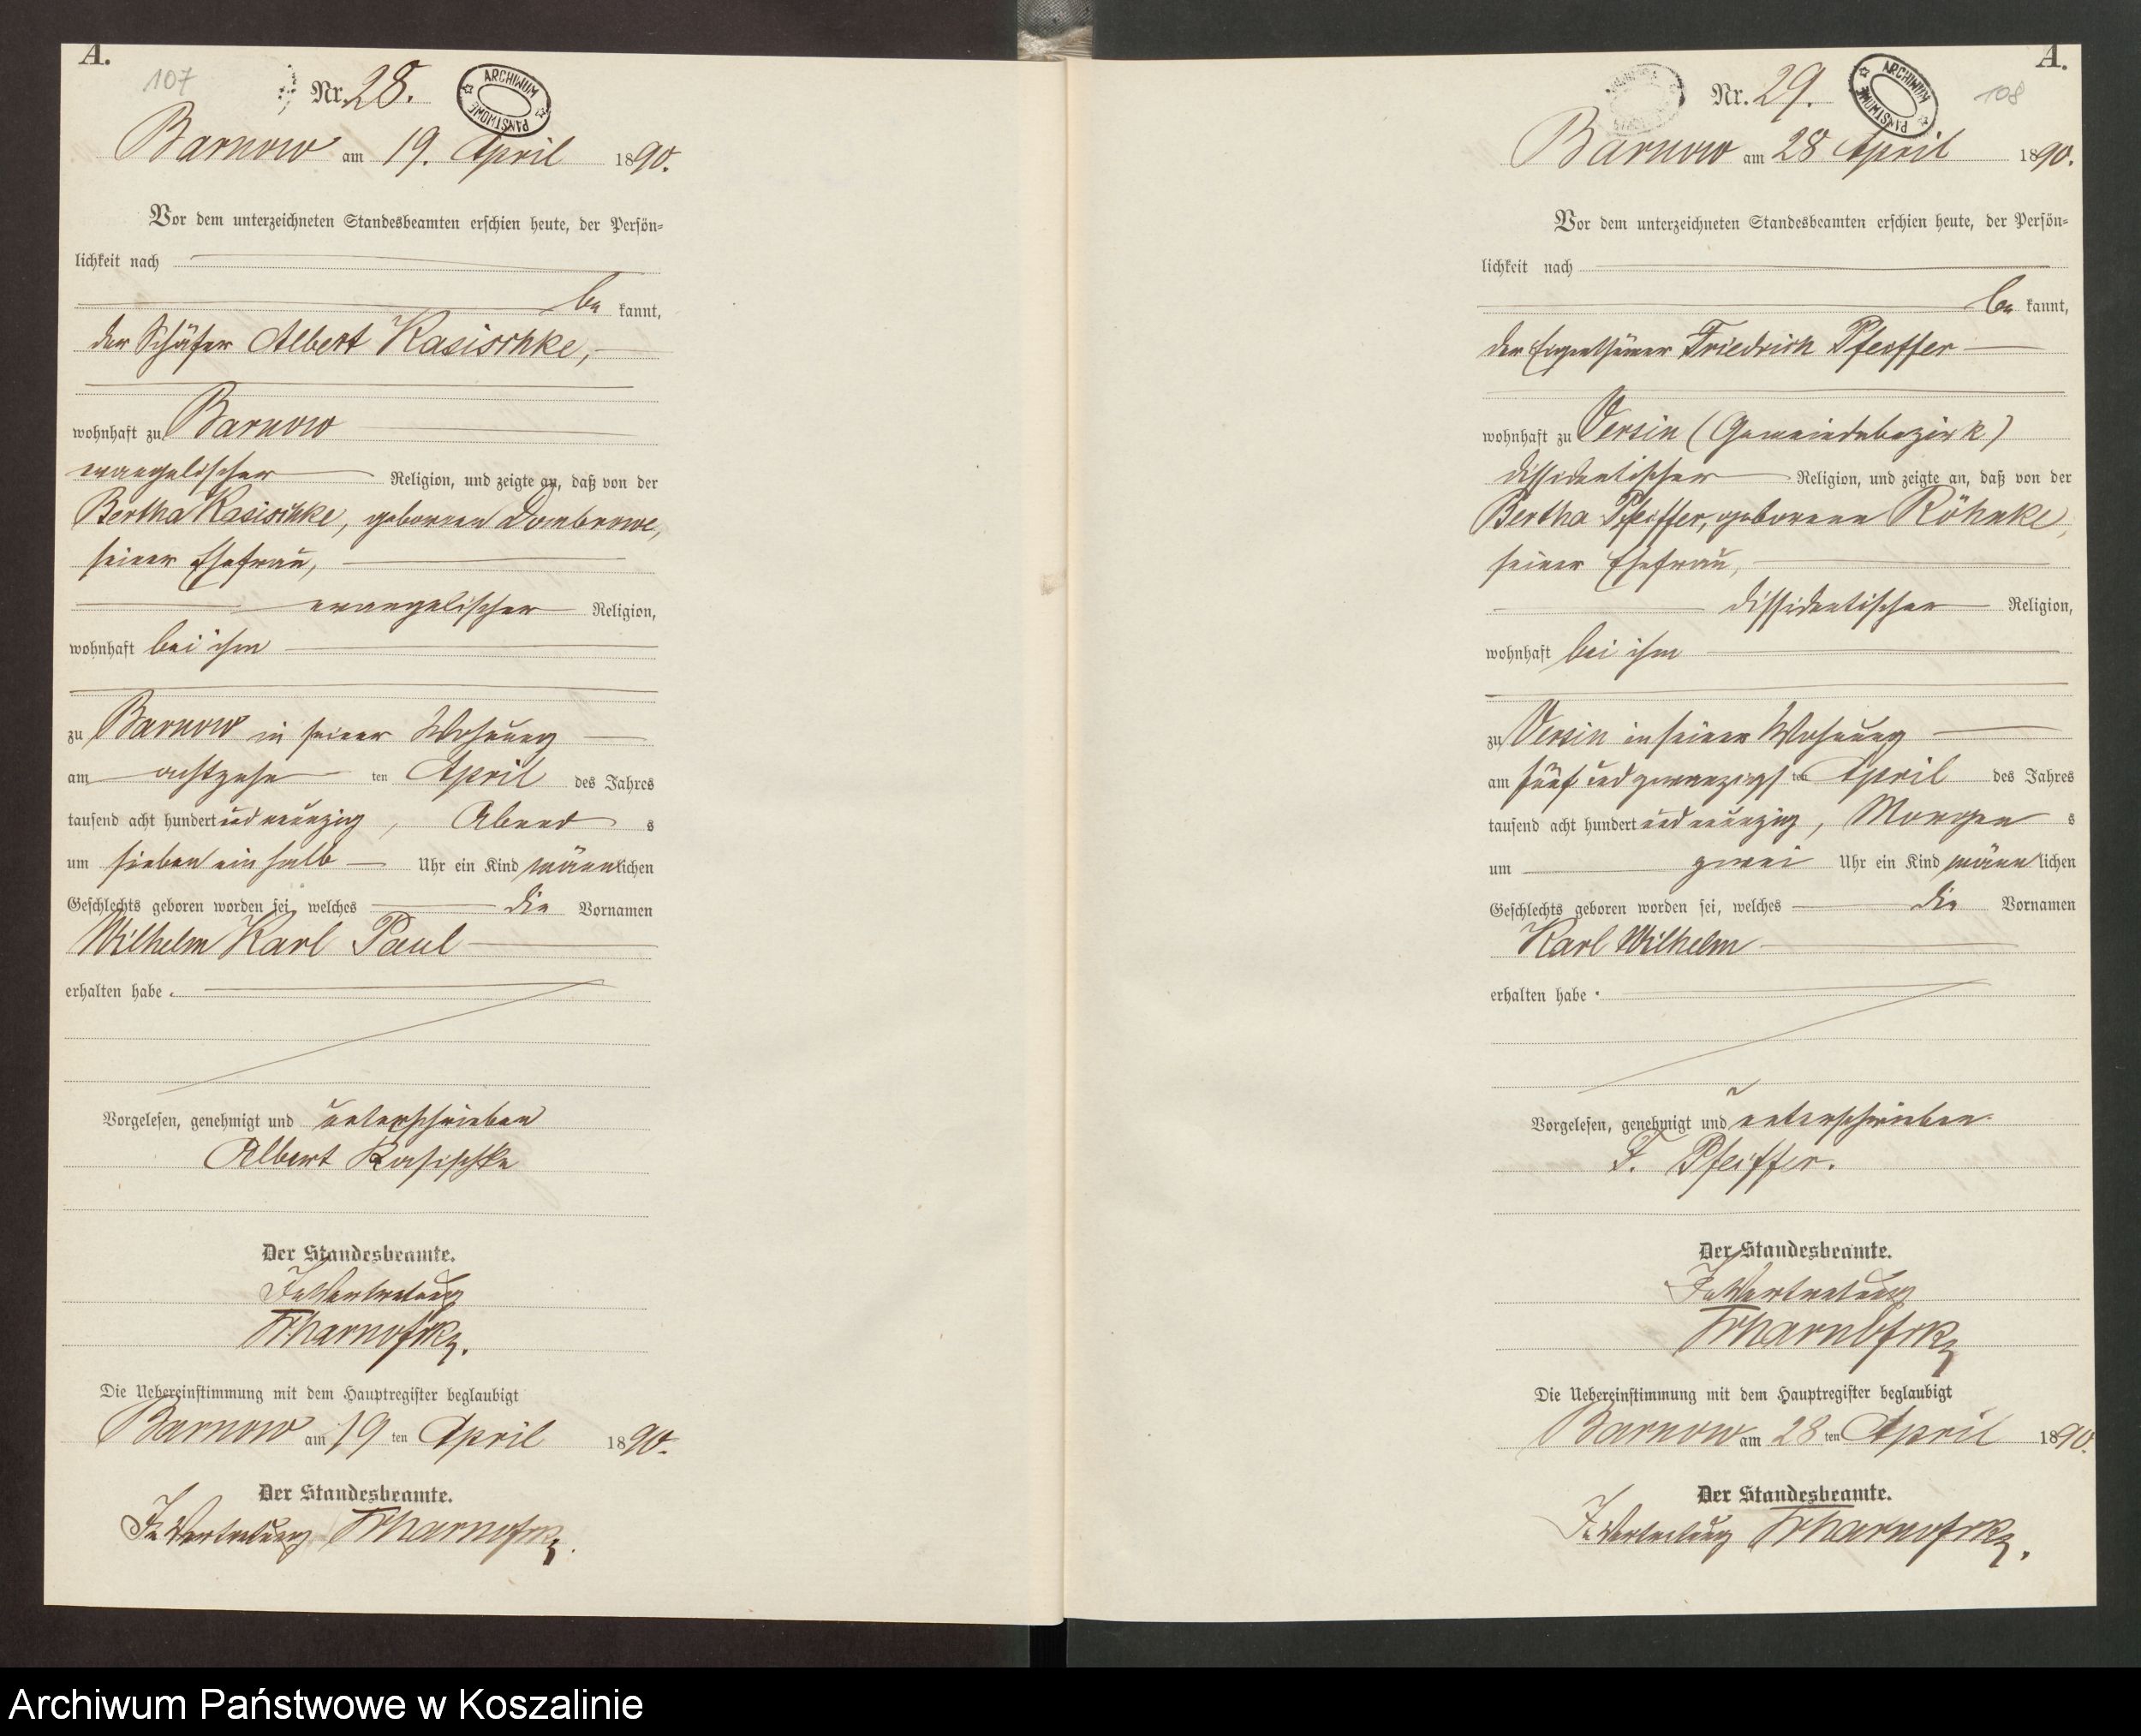 A.
107
Nr. 28.
ARCHIWUM PAŃSTWOWE
Barnow am 19. April 1890.
Vor dem unterzeichneten Standesbeamten erschien heute, der Persön-
lichkeit nach
be kannt,
der Schäfer Albert Kasischke,
wohnhaft zu Barnow
evangelischer Religion, und zeigte an, daß von der
Bertha Kasischke, geborenen Dombrowe,
seiner Ehefrau,
evangelischer Religion,
wohnhaft bei ihm
zu Barnow in seiner Wohnung
am achtzehn ten April des Jahres
tausend acht hundert und neunzig, Abend s
um sieben ein halb Uhr ein Kind männlichen
Geschlechts geboren worden sei, welches die Vornamen
Wilhelm Karl Paul
erhalten habe.
Vorgelesen, genehmigt und unterschrieben
Albert Kasischke
Der Standesbeamte.
In Vertretung
Die Uebereinstimmung mit dem Hauptregister beglaubigt
Barnow am 19 ten April 1890.
Der Standesbeamte.
In Vertretung
A.
108
Nr. 29.
ARCHIWUM PAŃSTWOWE
Barnow am 28 April 1890.
Vor dem unterzeichneten Standesbeamten erschien heute, der Persön-
lichkeit nach
be kannt,
der Eigenthümer Friedrich Pfeiffer
wohnhaft zu Versin (Gemeindebezirk)
dissidentischer Religion, und zeigte an, daß von der
Bertha Pfeiffer, geborenen Röhnke,
seiner Ehefrau,
dissidentischer Religion,
wohnhaft bei ihm
zu Versin in seiner Wohnung
am fünf und zwanzigs ten April des Jahres
tausend acht hundert und neunzig, Morgen s
um zwei Uhr ein Kind männlichen
Geschlechts geboren worden sei, welches die Vornamen
Karl Wilhelm
erhalten habe.
Vorgelesen, genehmigt und unterschrieben.
F. Pfeiffer.
Der Standesbeamte.
In Vertretung
Die Uebereinstimmung mit dem Hauptregister beglaubigt
Barnow am 28 ten April 1890.
Der Standesbeamte.
In Vertretung
Archiwum Państwowe w Koszalinie